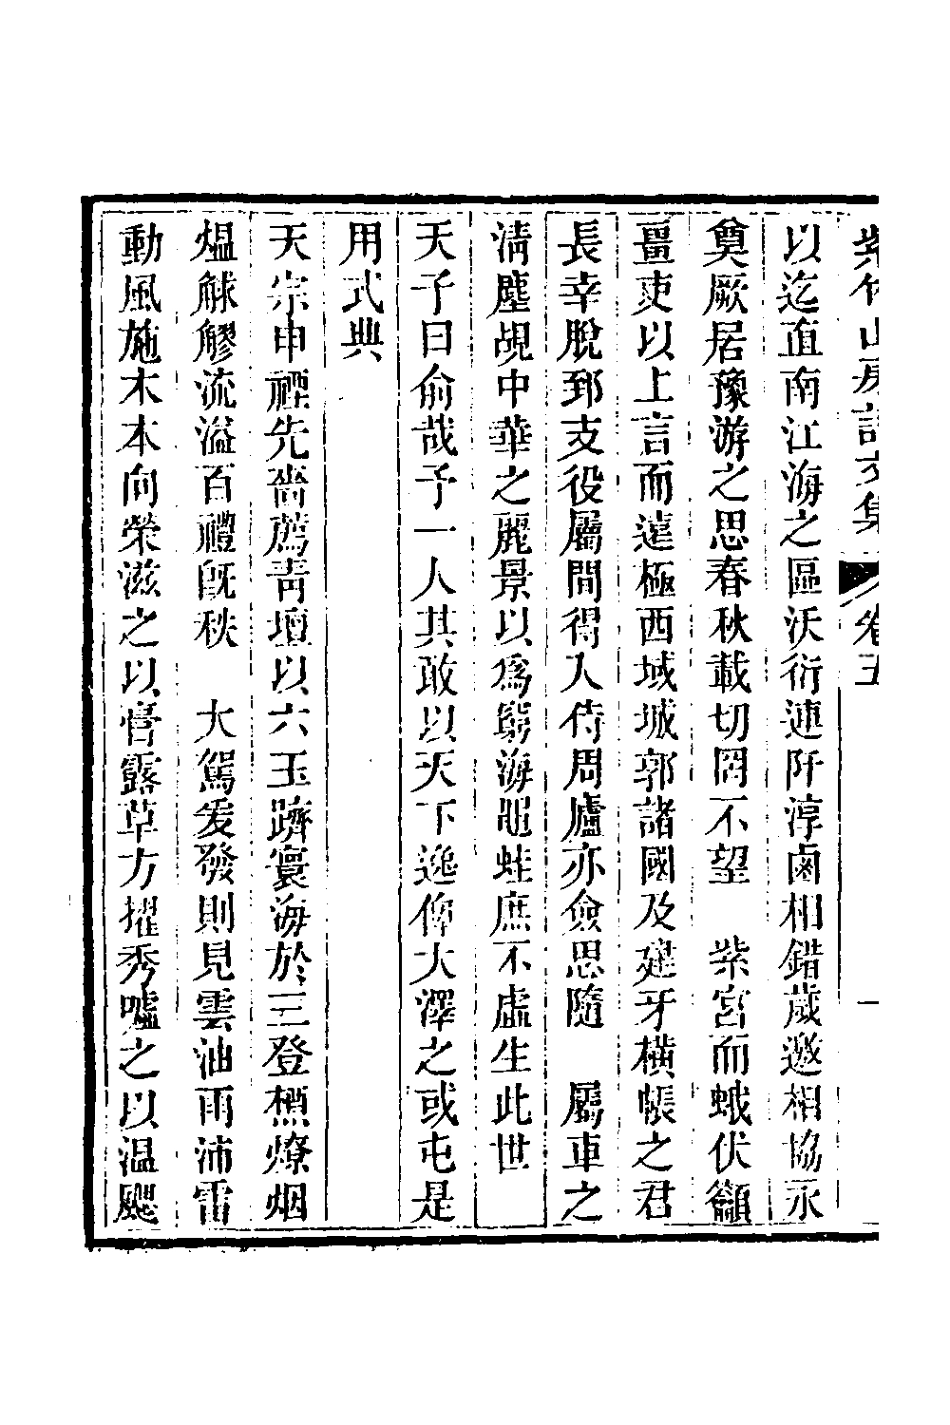 紫竹山房詩文集 卷五 一
以迄面南江海之區沃衍連阡淳鹵相錯歲邀相協永
奠厥居豫游之思春秋載切罔不望　紫宮而蛾伏籲
畺吏以上言而遠極西域城郭諸國及建牙橫帳之君
長幸脫郅支役屬閒得入侍周廬亦僉思隨　屬車之
淸塵覘中華之麗景以爲窮海黽蛙庶不虛生此世
天子曰俞哉予一人其敢以天下逸俾大澤之或屯是
用式典
天宗申禋先嗇薦靑壇以六玉躋寰海於三登槱燎烟
熅觩觠流溢百禮旣秩　大駕爰發則見雲油雨沛雷
動風施木本向榮滋之以膏露草方擢秀噓之以温颸